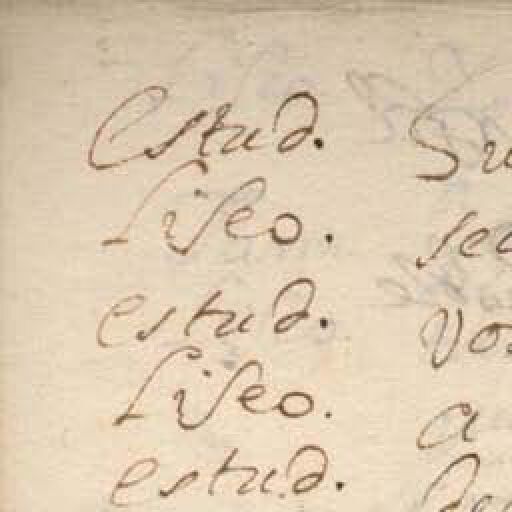 estud. Su
Liseo. sec
estud. vos
Liseo. a
estud.